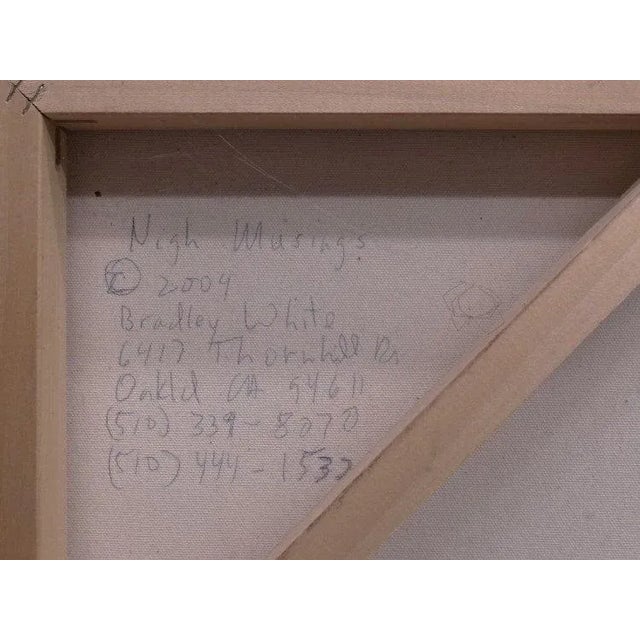 Nigh Musings
© 2004
Bradley White
6417 Thornhill Dr
Oakld CA 94611
(510) 339-8070
(510) 444-1532